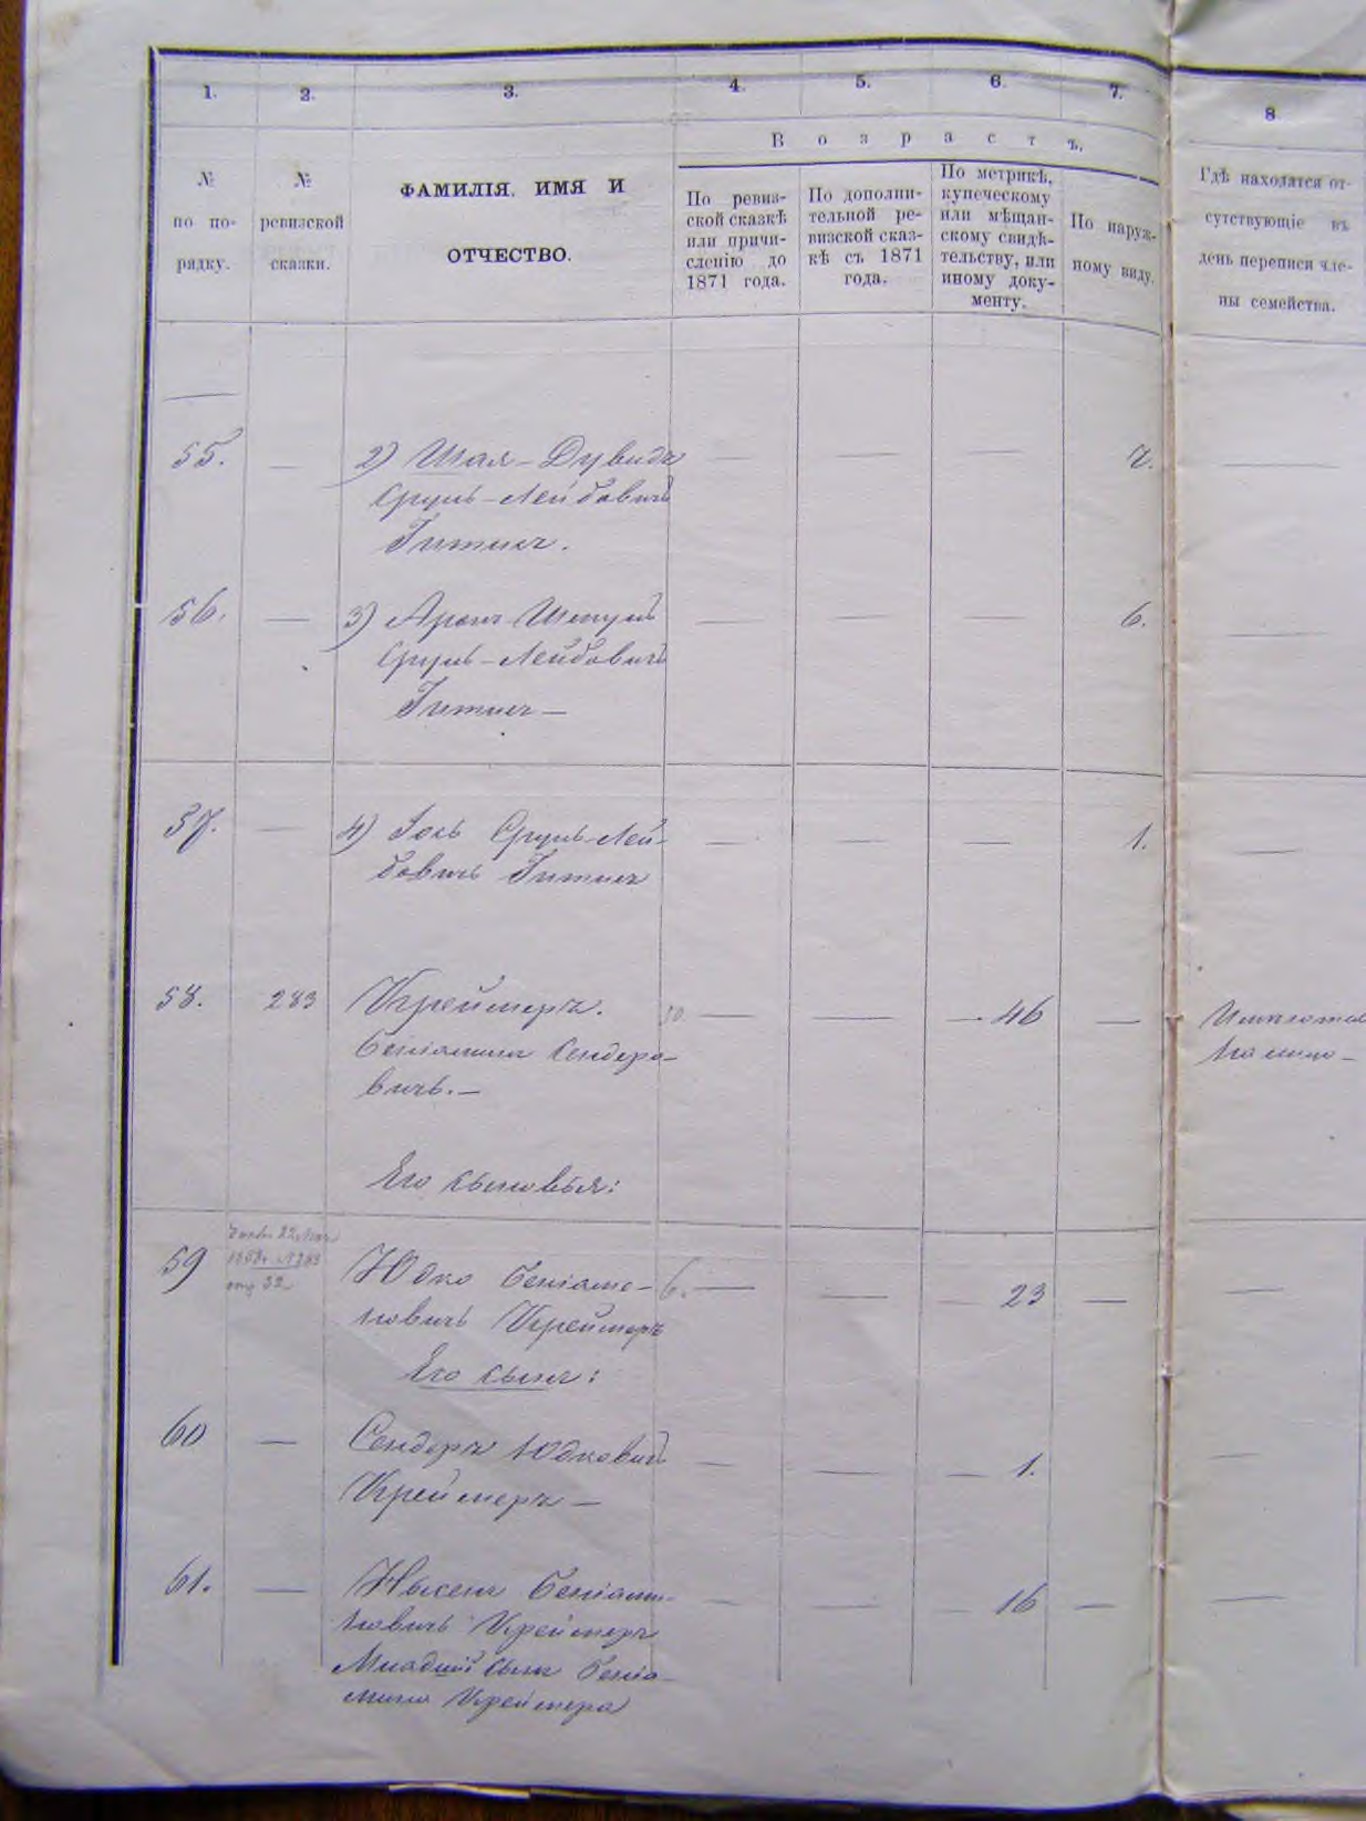 1. 2. 3. 4. 5. 6. 7. 8
В о з р а с т ъ.
№ по по-
рядку.
№
ревизской
сказки.
ФАМИЛІЯ, ИМЯ И
ОТЧЕСТВО.
По ревиз-
ской сказкѣ
или причи-
сленію до
1871 года.
По дополни-
тельной ре-
визской сказ-
кѣ съ 1871
года.
По метрикѣ,
купеческому
или мѣщан-
скому свидѣ-
тельству, или
иному доку-
менту.
По наруж-
ному виду.
Гдѣ находятся от-
сутствующіе въ
день переписи чле-
ны семейства.
55. — 2) Шая-Дувидъ — — — 7. —
Сруль-Лейбовичъ
Гитисъ.
56. — 3) Аронъ — — — 6. —
Сруль-Лейбовичъ
Гитисъ —
57. — 4) Іось Сруль-Лей- — — — 1. —
бовичъ Гитисъ
58. 283 Креймеръ. — — 46 —
Беніаминъ Сендеро-
вичъ. —
Его сыновья:
59 Юдко Беніами- 6. — — 23 — —
новичъ Креймеръ
Его сынъ:
60 — Сендеръ Юдковичъ — — — 1. —
Креймеръ —
61. — Нысенъ Беніами- — — — 16 — —
новичъ Креймеръ
Младшій сынъ Беніа-
мина Креймера